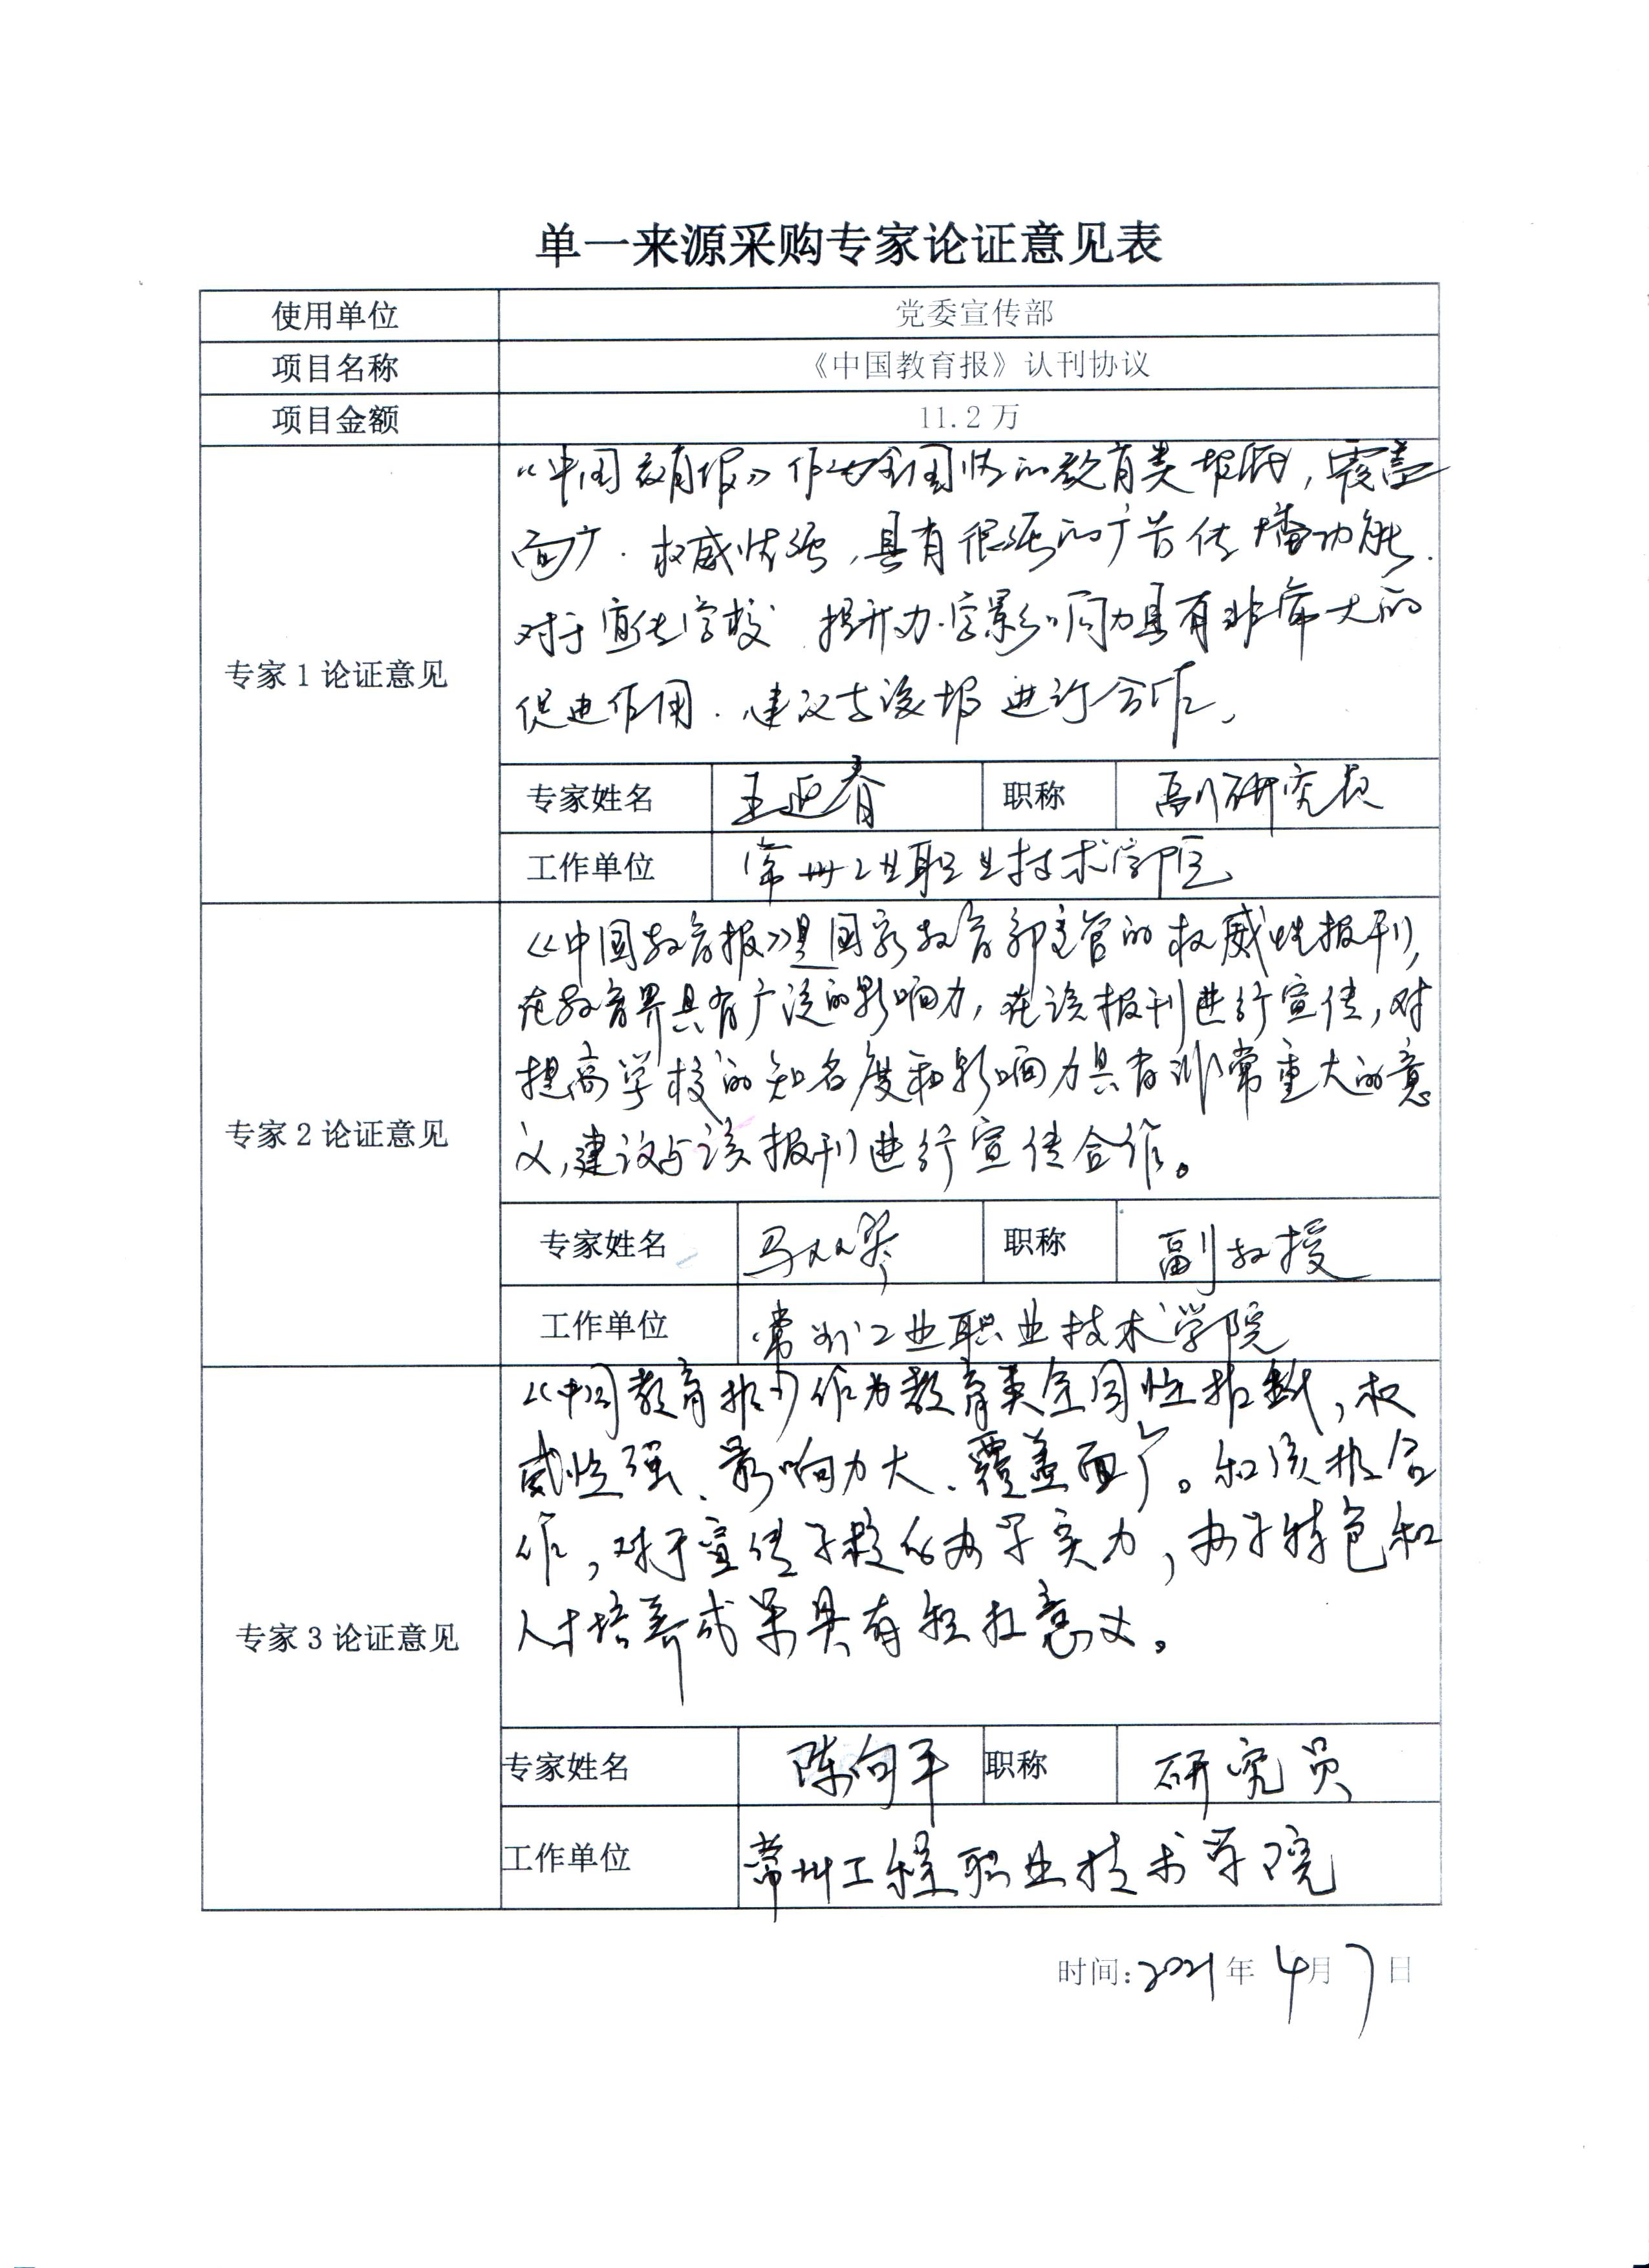 单一来源采购专家论证意见表
使用单位 党委宣传部
项目名称 《中国教育报》认刊协议
项目金额 11.2万
专家1论证意见
《中国教育报》作为全国性的教育类报纸，覆盖
面广.权威性强，具有很强的广告传播功能.
对于宣传学校 提升办学影响力具有非常大的
促进作用.建议与该报进行合作，
专家姓名 王迎春 职称 副研究员
工作单位 常州工业职业技术学院
专家2论证意见
《中国教育报》是国家教育部主管的权威性报刊,
在教育界具有广泛的影响力,在该报刊进行宣传,对
提高学校的知名度和影响力具有非常重大的意
义,建议与该报刊进行宣传合作。
专家姓名 马双琴 职称 副教授
工作单位 常州工业职业技术学院
专家3论证意见
《中国教育报》作为教育类全国性报纸,权
威性强、影响力大、覆盖面广。和该报合
作,对于宣传学校的办学实力,办学特色和
人才培养成果具有积极意义。
专家姓名 陈向平 职称 研究员
工作单位 常州工程职业技术学院
时间:2021年4月7日